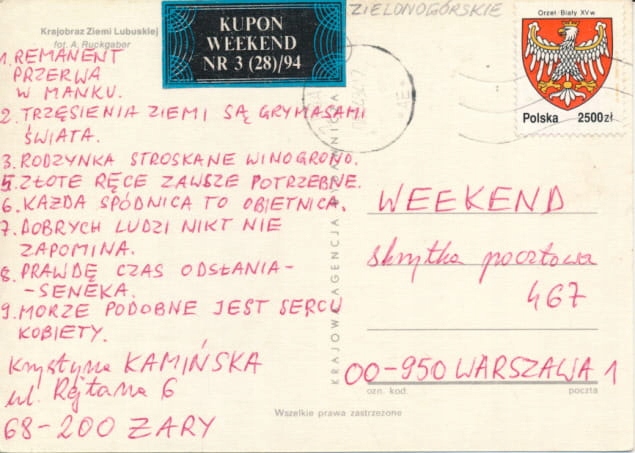 Krajobraz Ziemi Lubuskiej
fot. A. Ruckgaber
KUPON
WEEKEND
NR 3 (28)/94
ZIELONOGÓRSKIE
Orzeł Biały XV w
Polska 2500zł
1. REMANENT
PRZERWA
W MANKU.
2. TRZĘSIENIA ZIEMI SĄ GRYMASAMI
ŚWIATA.
3. RODZYNKA STROSKANE WINOGRONO.
5. ZŁOTE RĘCE ZAWSZE POTRZEBNE.
6. KAŻDA SPÓDNICA TO OBIETNICA.
7. DOBRYCH LUDZI NIKT NIE
ZAPOMINA.
8. PRAWDĘ CZAS ODSŁANIA-
-SENEKA.
9. MORZE PODOBNE JEST SERCU
KOBIETY.
Krystyna KAMIŃSKA
ul. Rejtana 6
68-200 ŻARY
KRAJOWA AGENCJA
WEEKEND
skrytka pocztowa
467
00-950 WARSZAWA 1
ozn. kod. poczta
Wszelkie prawa zastrzeżone